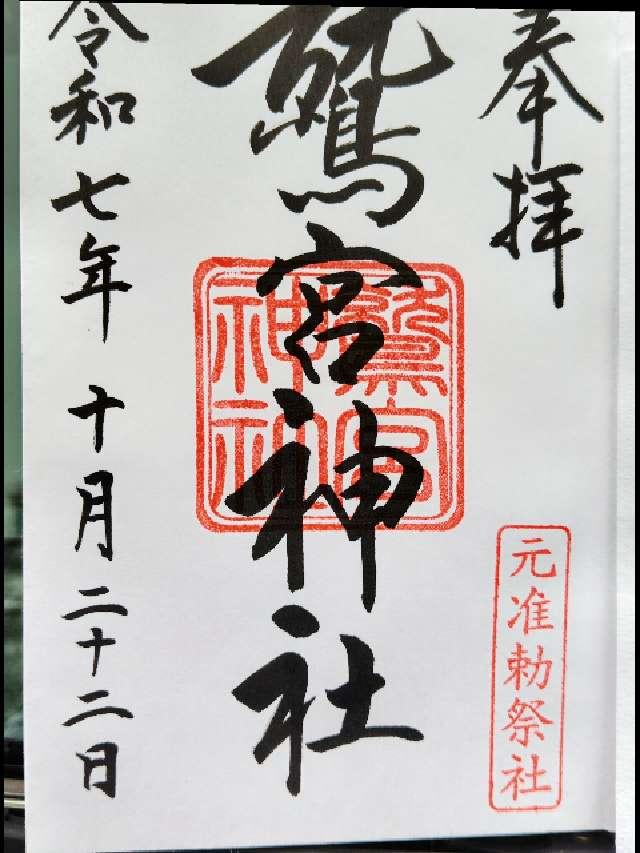 奉拝
元准勅祭社
鷲宮神社
鷲宮
神社
令和七年十月二十二日